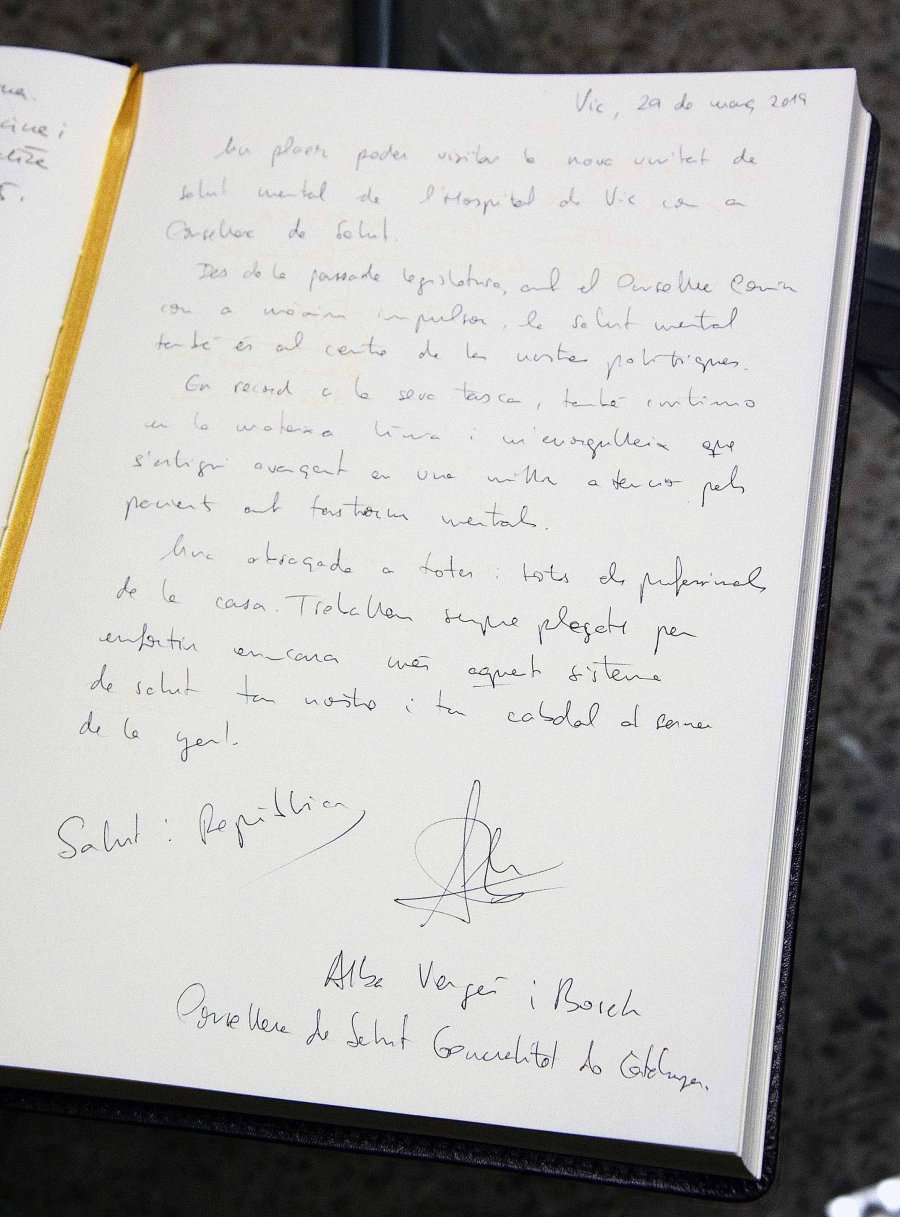 na.
cine i
5.
Vic, 29 de març 2019
Un plaer poder visitar la nova unitat de
salut mental de l'Hospital de Vic com a
Consellera de Salut.
Des de la passada legislatura, amb el Conseller Comín
com a màxim impulsor, la salut mental
també és al centre de les nostres polítiques.
En record a la seva tasca, també continuo
en la mateixa línia i m'enorgulleix que
s'estigui avançant en una millor atenció pels
pacients amb trastorns mentals.
Una abraçada a totes i tots els professionals
de la casa. Treballem sempre plegats per
enfortir encara més aquest sistema
de salut tan nostre i tan cabdal al servei
de la gent.
Salut i República
Alba Vergés i Bosch
Consellera de Salut Generalitat de Catalunya.